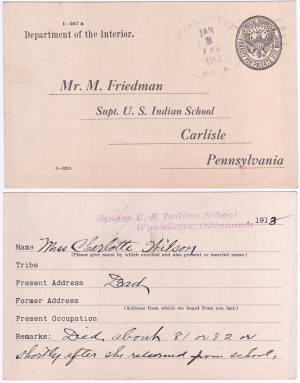 1—567 a
Department of the Interior.
JAN
3
7 PM
1913
Mr. M. Friedman
Supt. U. S. Indian School
Carlisle
Pennsylvania
Seneca U. S. Indian School
Wyandotte, Oklahoma
, 1913
Name Miss Charlotte Wilson
(Please give name by which enrolled and also present or married name.)
Tribe
Present Address Dead
Former Address
(Address from which we heard from you last.)
Present Occupation
Remarks: Died about 81 or 82 or
shortly after she returned from school.